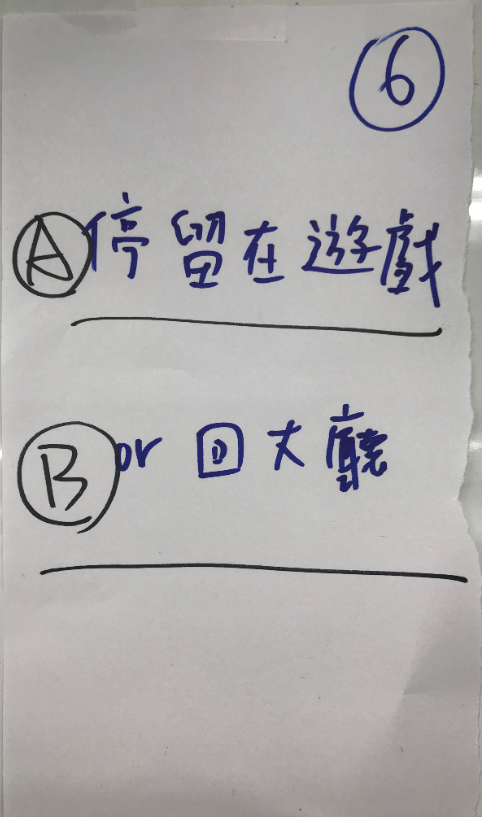 6
A 停留在遊戲
B or 回大廳